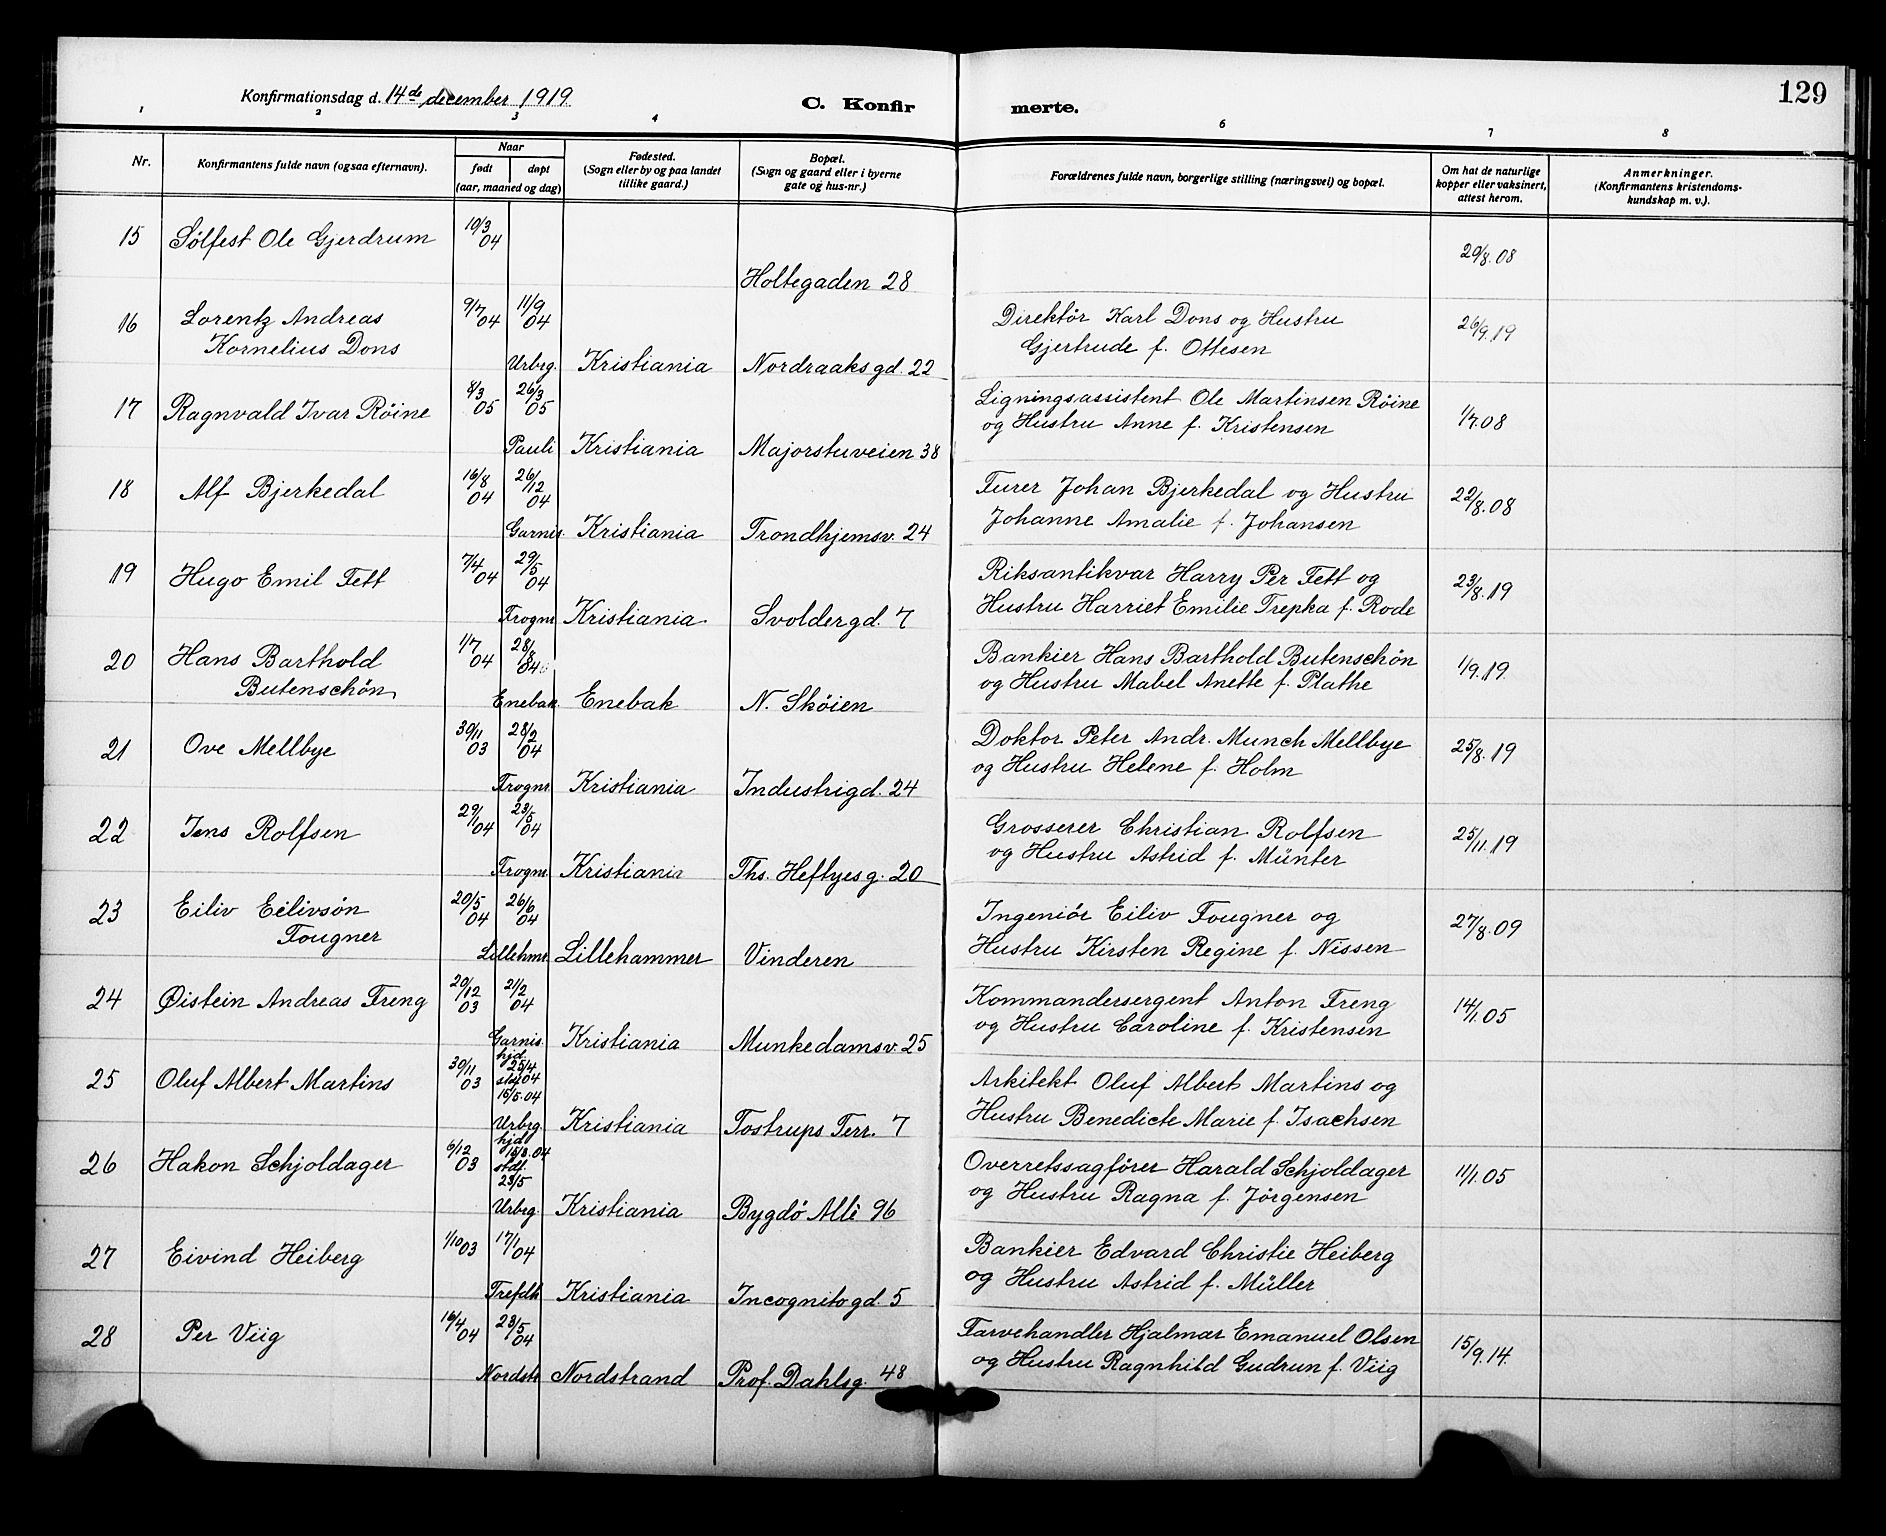 Konfirmationsdag d. 14de december 1919.
C. Konfirmerte.
129
1 2 3 4 6 7 8
Nr. Konfirmantens fulde navn (ogsaa efternavn). Naar født døpt (aar, maaned og dag) Fødested. (Sogn eller by og paa landet tillike gaard.) Bopæl. (Sogn og gaard eller i byerne gate og hus-nr.) Forældrenes fulde navn, borgerlige stilling (næringsvei) og bopæl. Om hat de naturlige kopper eller vaksinert, attest herom. Anmerkninger. (Konfirmantens kristendoms-kundskap m. v.).
15 Sölfest Ole Gjerdrum 10/3 04 29/8.08
Holtegaden 28
16 Lorentz Andreas 9/7 04 11/9 04 Direktör Karl Dons og Hustru 26/9.19
Kornelius Dons Gjertrude f. Ottesen
Urbrg. Kristiania Nordraaksgd. 22
17 Ragnvald Ivar Röine 8/3 05 26/3 05 Ligningsassistent Ole Martinsen Röine 1/7.08
og Hustru Anne f. Kristensen
Pauli Kristiania Majorstuveien 38
18 Alf Bjerkedal 16/8 04 26/12 04 Furer Johan Bjerkedal og Hustru 22/8.08
Johanne Amalie f. Johansen
Garnis. Kristiania Trondhjemsv. 24
19 Hugo Emil Fett 7/4 04 29/5 04 Riksantikvar Harry Per Fett og 23/8.19
Hustru Harriet Emilie Trepka f. Rode
Frognr Kristiania. Svoldergd. 7
20 Hans Barthold 1/7 04 28/8 04 Bankier Hans Barthold Butenschön 1/9.19.
Butenschön og Hustru Mabel Anette f. Plathe
Enebak. Enebak N. Sköien
21 Ove Mellbye 30/11 03 28/2 04 Doktor Peter Andr. Munch Mellbye 25/8.19
og Hustru Helene f. Holm
Frognr. Kristiania Industrigd. 24
22 Jens Rolfsen 29/1 04 23/5 04 Grosserer Christian Rolfsen 25/11.19
og Hustru Astrid f. Münter
Frognr. Kristiania Ths. Heftyesg. 20
23 Eiliv Eilivsön 20/5 04 26/6 04 Ingeniör Eiliv Fougner og 27/8.09
Fougner Hustru Kirsten Regine f. Nissen
Lillehmr. Lillehammer Vinderen
24 Øistein Andreas Freng 20/12 03 2/2 04 Kommandersergent Anton Freng 14/1.05
og Hustru Caroline f. Kristensen
Garnis. Kristiania Munkedamsv. 25
25 Oluf Albert Martins 30/11 03 hjd. 25/4 stdf. 04 16/5.04 Arkitekt Oluf Albert Martins og
Hustru Benedicte Marie f. Isachsen
Urbrg. Kristiania Tostrups Terr. 7
26 Hakon Schjoldager 6/12 03 hjd. 15/3.04 stdf. 23/5 Overretssagförer Harald Schjoldager 11/1.05
og Hustru Ragna f. Jörgensen
Urbrg. Kristiania Bygdö Allè 96
27 Eivind Heiberg 1/10 03 17/1 04 Bankier Edvard Christie Heiberg
og Hustru Astrid f. Müller
Trefdh. Kristiania Incognitogd. 5
28 Per Viig 16/4 04 23/5 04 Farvehandler Hjalmar Emanuel Olsen 15/9.14.
og Hustru Ragnhild Gudrun f. Viig
Nordstr. Nordstrand Prof. Dahlsg. 48